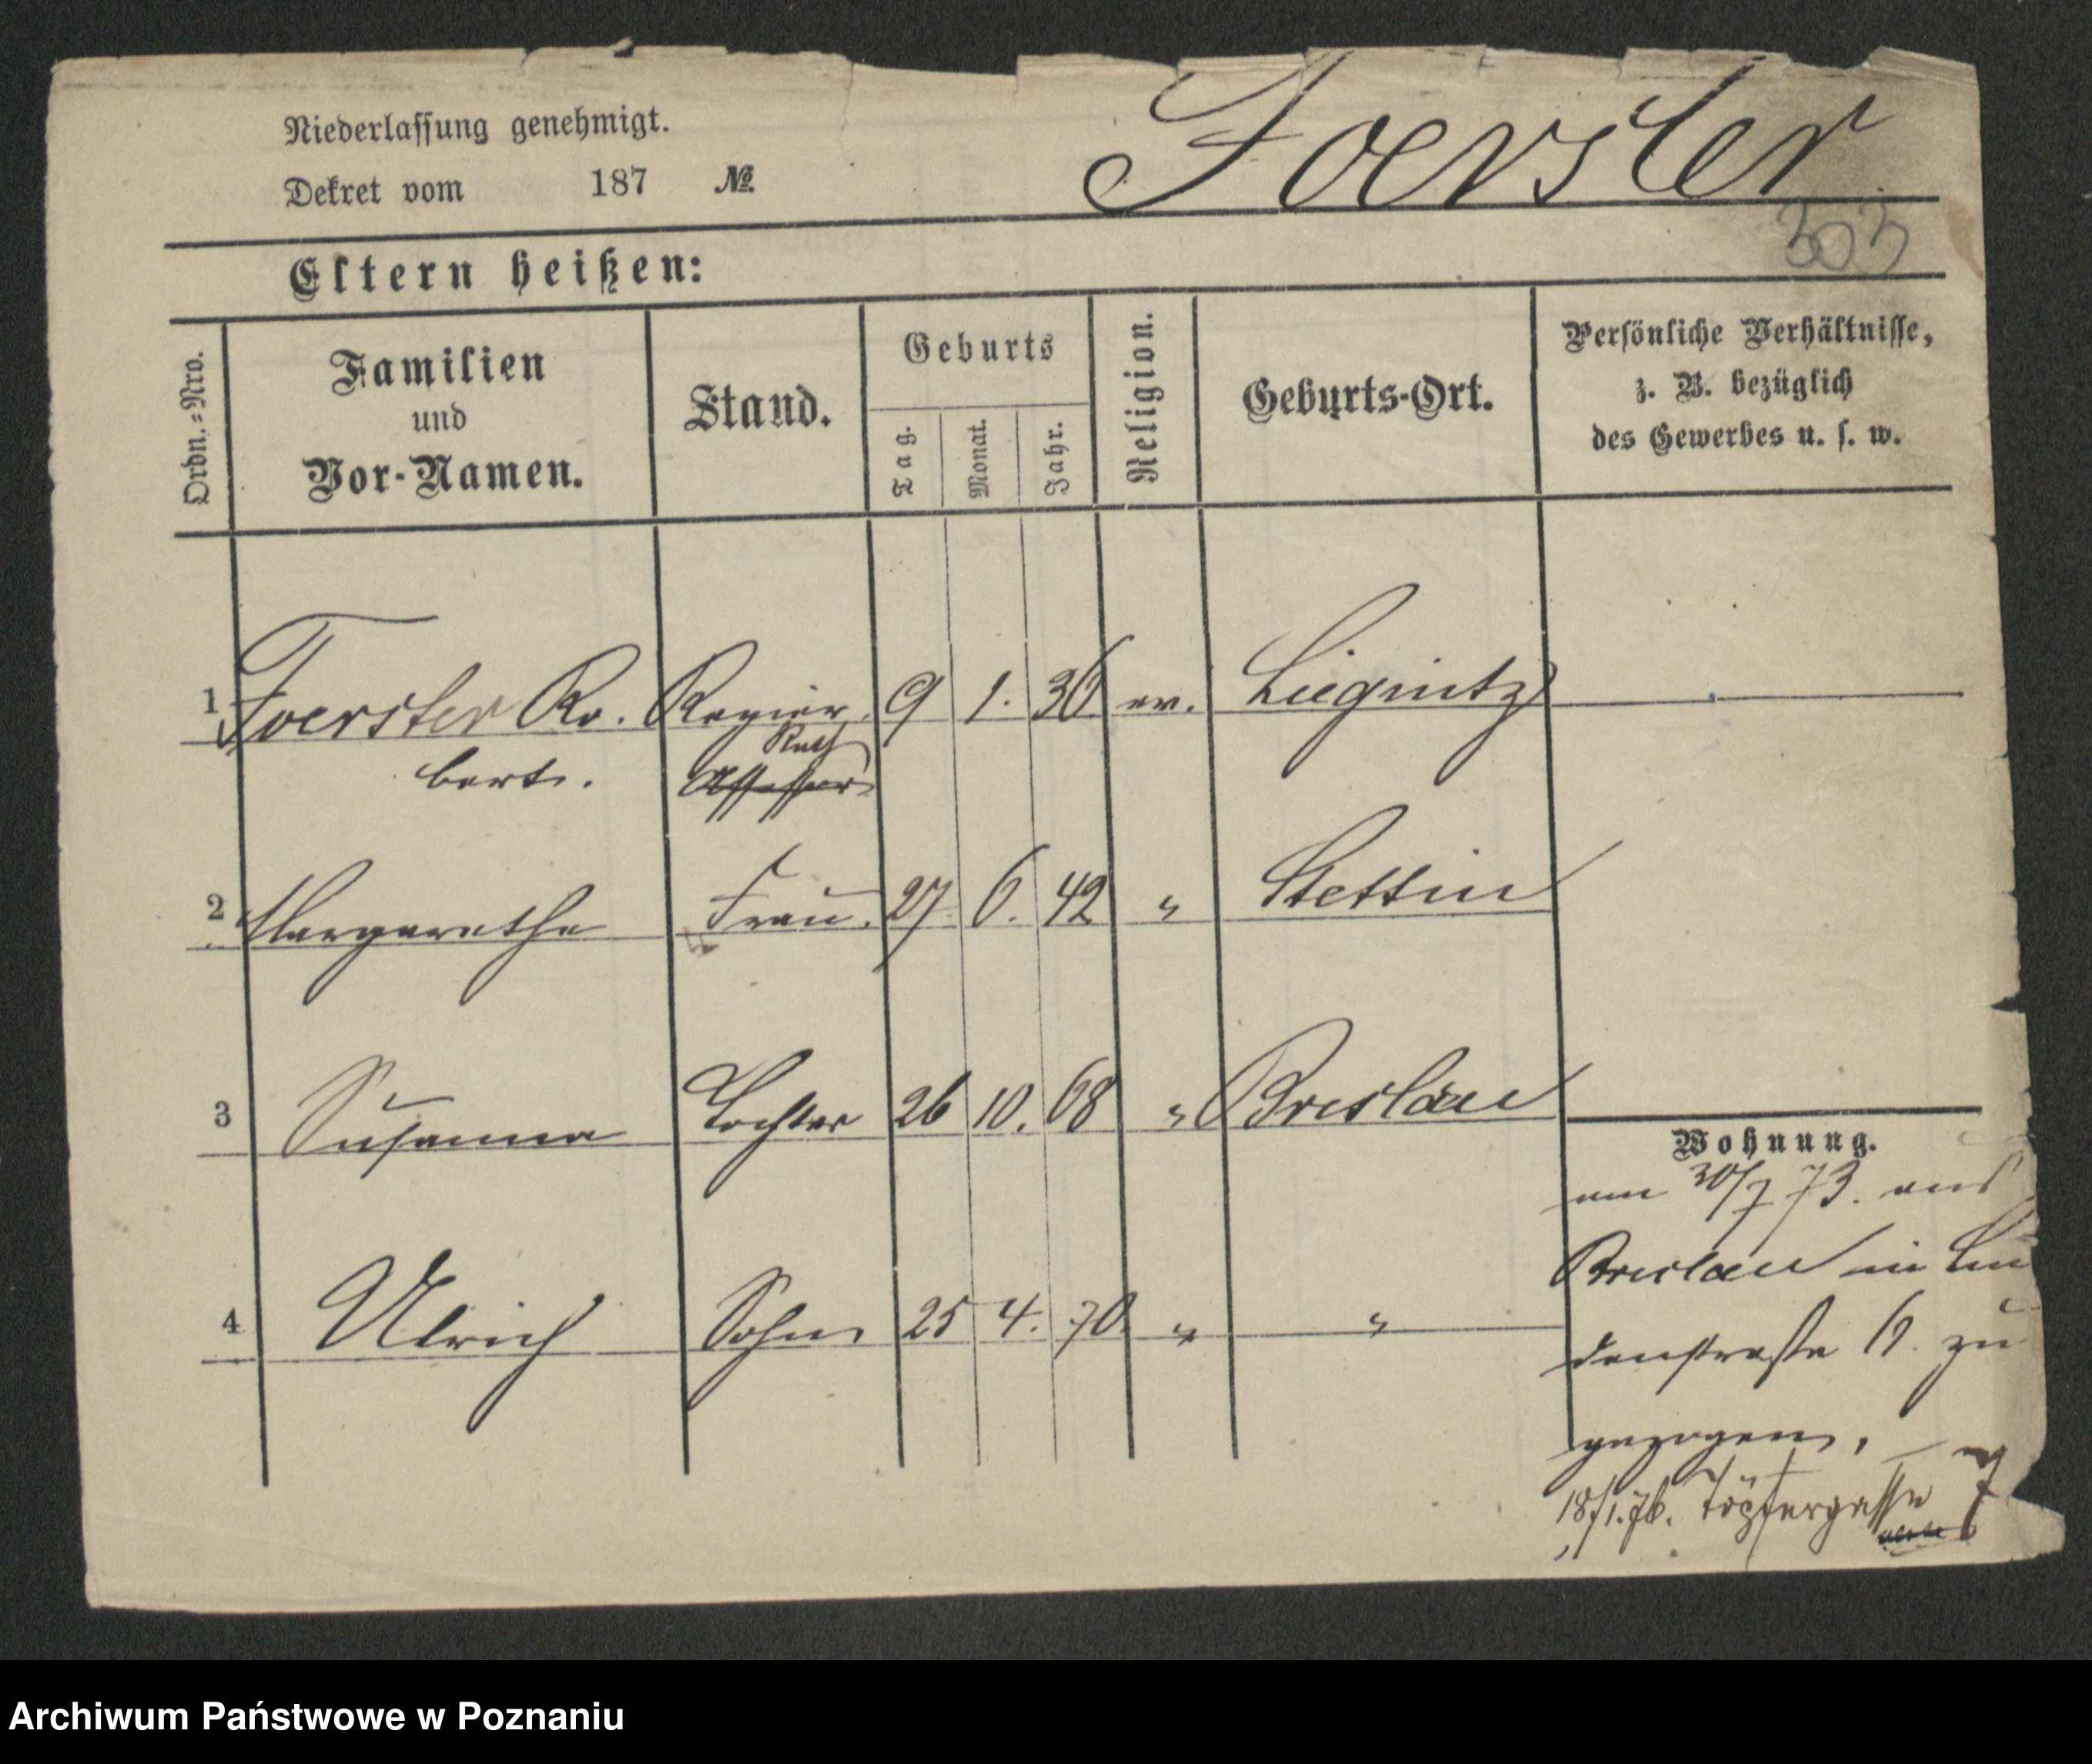 Niederlassung genehmigt.
Dekret vom 187 №
Foerster
303
Eltern heißen:
Ordn.=Nro.
Familien
und
Vor-Namen.
Stand.
Geburts
Tag.
Monat.
Jahr.
Religion.
Geburts-Ort.
Persönliche Verhältnisse,
z. B. bezüglich
des Gewerbes u. s. w.
1 Foerster Ro. Regier. 9 1. 36 ev. Liegnitz
bert. Rath
Assessor
2 Margarethe Frau. 27. 6. 42 " Stettin
3 Susanna Tochter 26 10. 68 " Breslau
4 Ulrich Sohn 25 4. 70. " "
Wohnung.
am 30/7 73. aus
Breslau in Lin
denstraße 6. zu
gezogen,
18/1.76. Töpfergasse
Archiwum Państwowe w Poznaniu